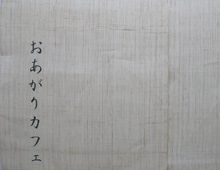 おあがりカフェ